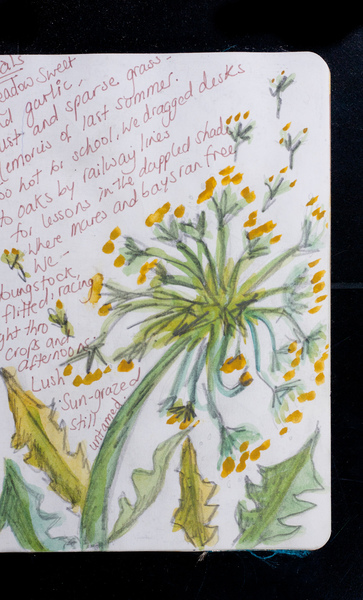 als
eadow sweet
ild garlic,
ust and sparse grass -
emories of last summer.
oo hot for school. We dragged desks
to oaks by railway lines
for lessons in the dappled shade
where mares and bays ran free
We -
oungstock,
flitted, racing
ght thro'
crops and
afternoons.
Lush
Sun-grazed
still
untamed